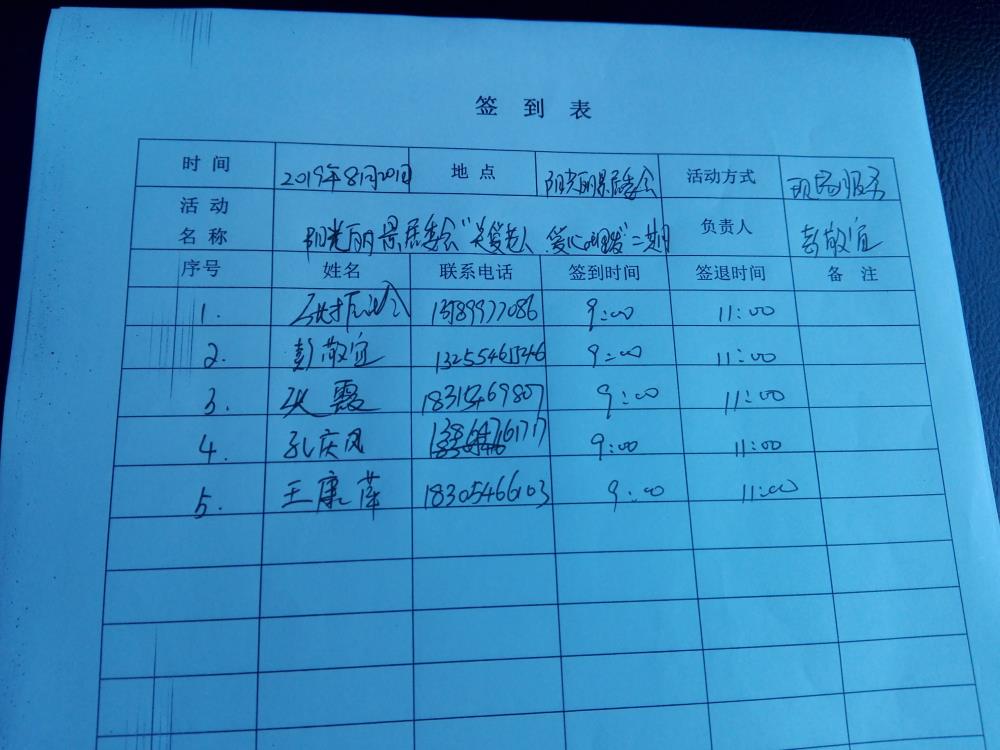 签到表
时间 2019年8月20日 地点 阳光丽景居委会 活动方式 现场服务
活动名称 阳光丽景居委会"关爱老人 爱心理发"二期 负责人 彭敬宜
序号 姓名 联系电话 签到时间 签退时间 备注
1. 13589977086 9:00 11:00
2. 彭敬宜 13255461546 9:00 11:00
3. 张霞 18315469807 9:00 11:00
4. 孔庆凤 13864761717 9:00 11:00
5. 王康萍 18305466103 9:00 11:00